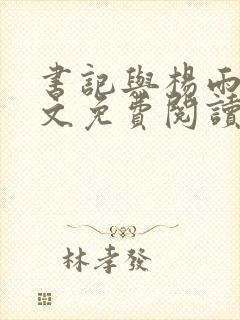 書記與楊雨
文免費閱讀
林孝發